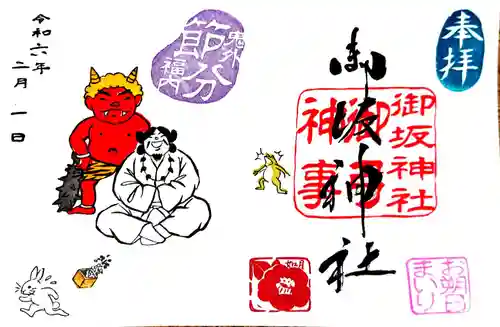 奉拝
御坂神社
御坂神社
御神事
お朔日
まいり
如月
節分
鬼外
福内
令和六年
二月一日